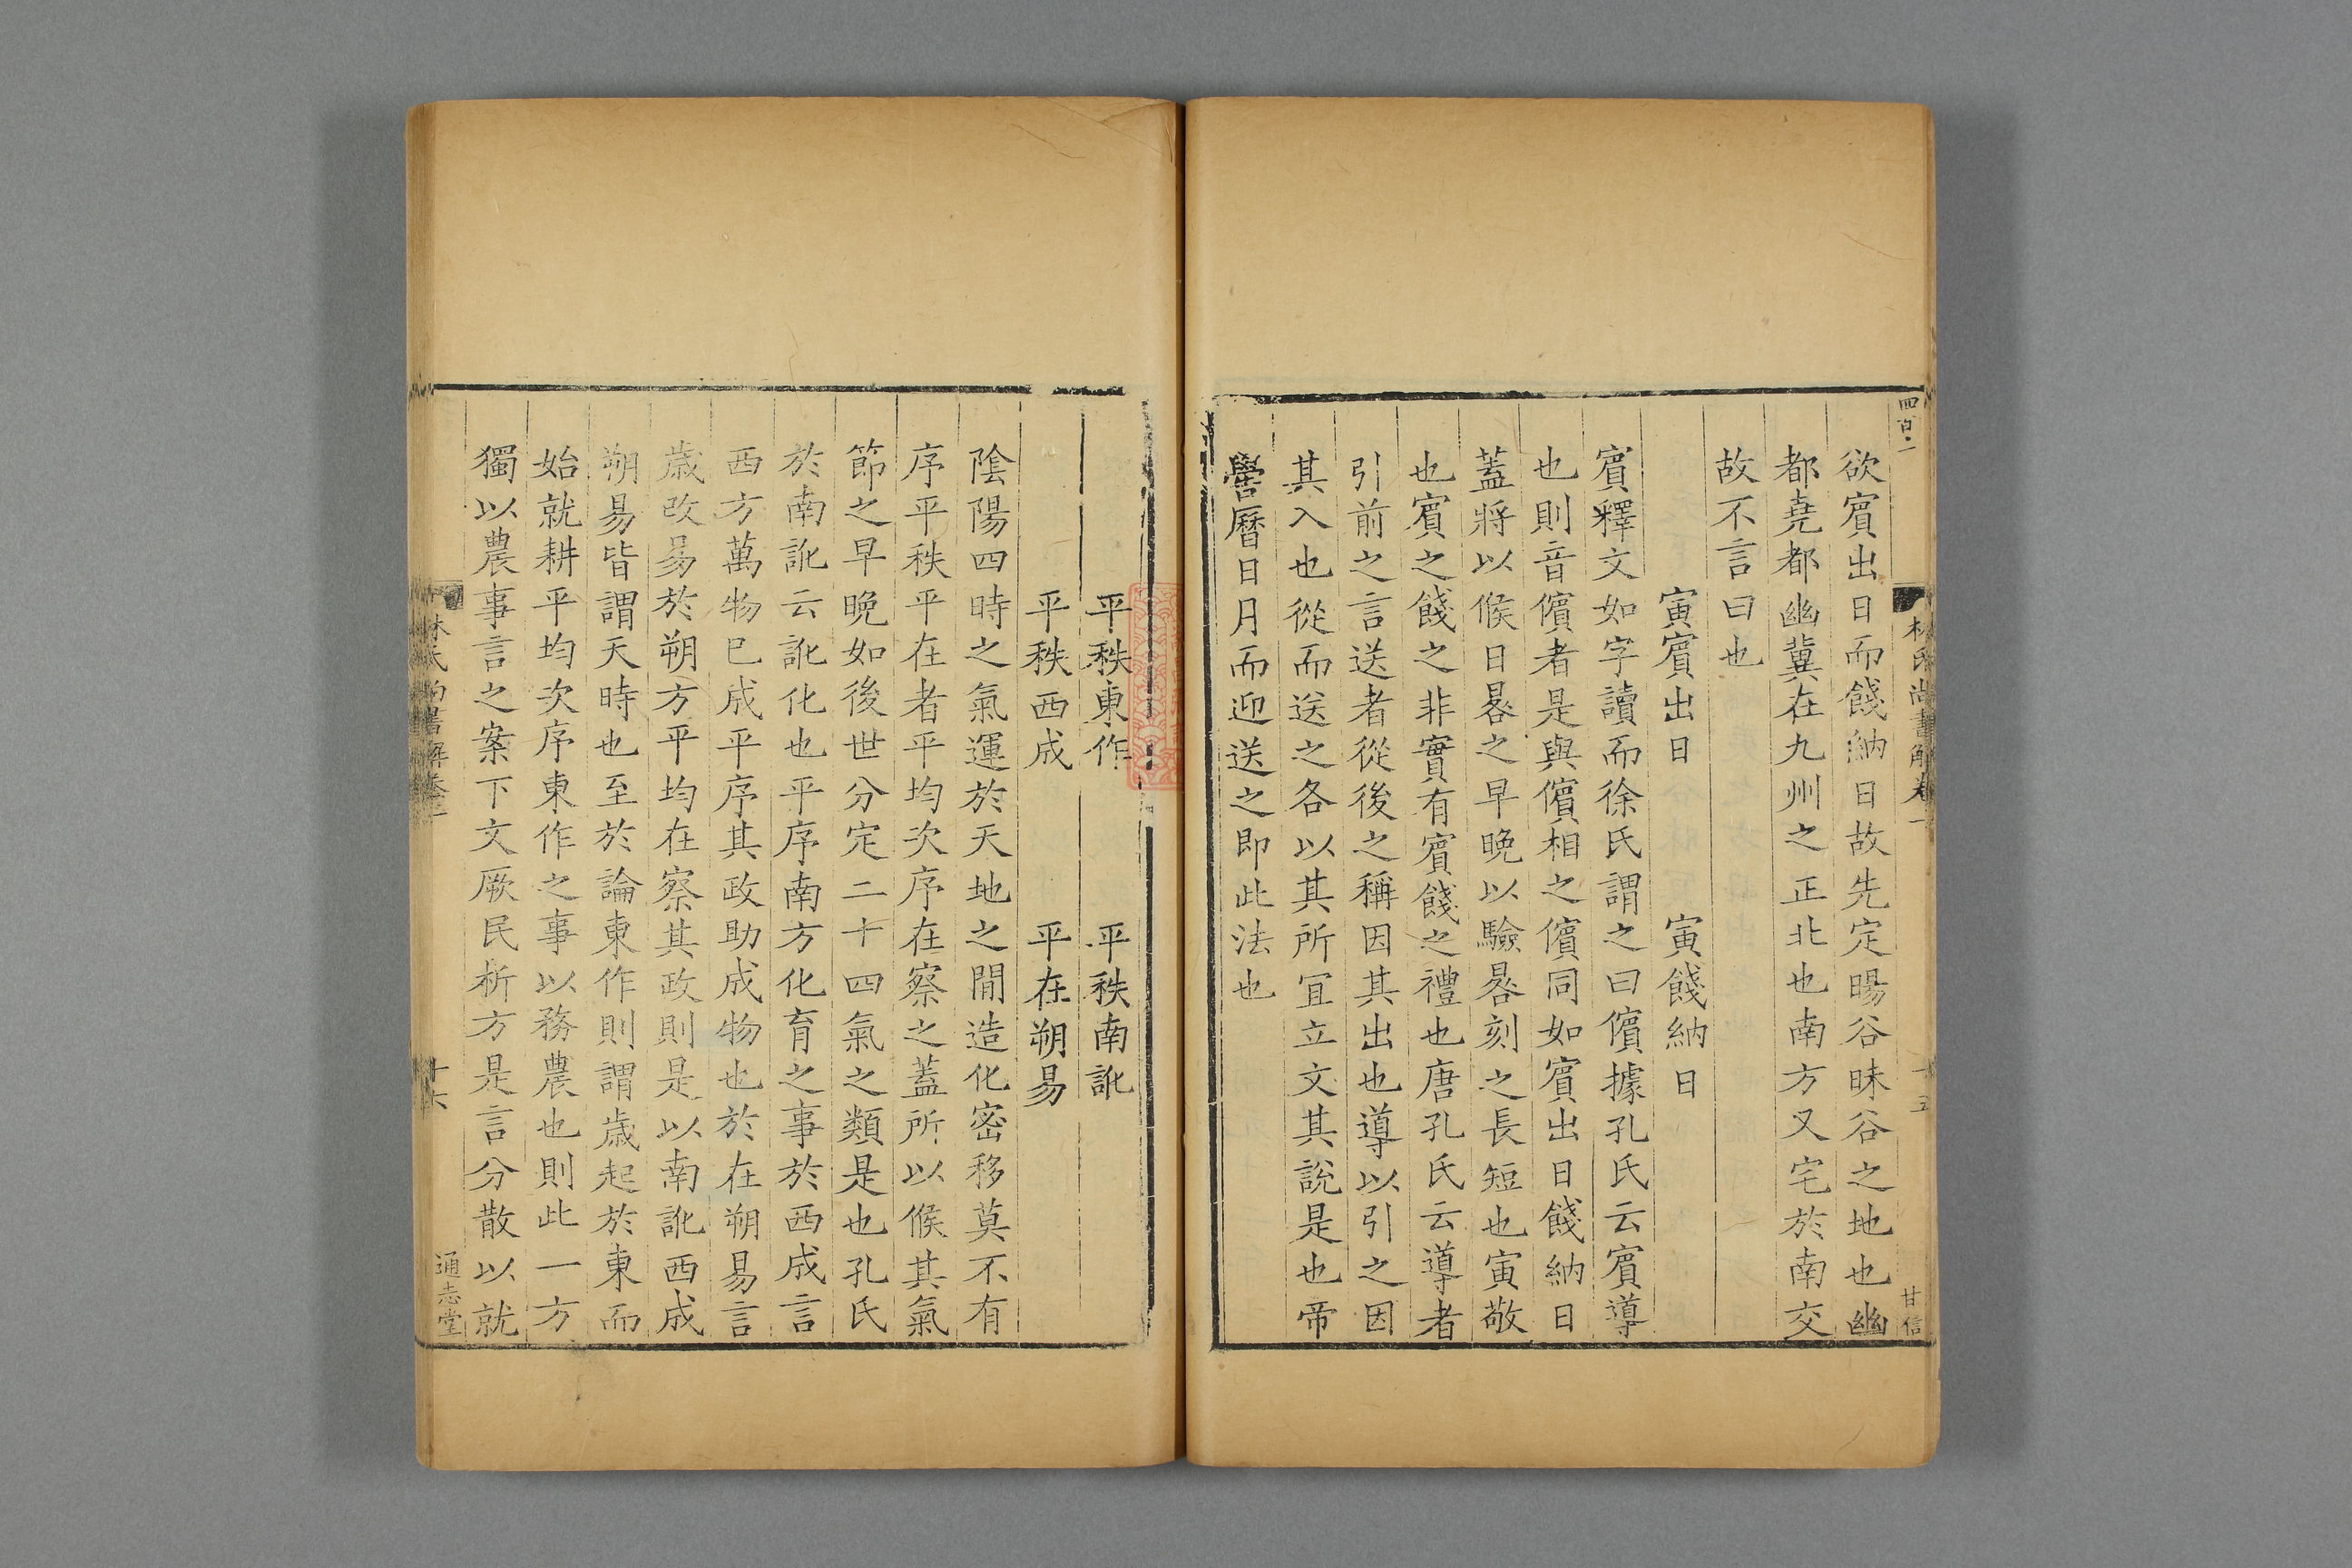 四百二
林氏尚書解卷一
十五
甘信
欲賔出日而餞納日故先定暘谷昧谷之地也幽
都堯都幽冀在九州之正北也南方又宅於南交
故不言曰也
寅賔出日 寅餞納日
賔釋文如字讀而徐氏謂之曰儐據孔氏云賔導
也則音儐者是與儐相之儐同如賔出日餞納日
蓋將以候日晷之早晚以驗晷刻之長短也寅敬
也賔之餞之非實有賔餞之禮也唐孔氏云導者
引前之言送者從後之稱因其出也導以引之因
其入也從而送之各以其所宜立文其說是也帝
嚳曆日月而迎送之即此法也
平秩東作 平秩南訛
平秩西成 平在朔易
陰陽四時之氣運於天地之閒造化密移莫不有
序平秩平在者平均次序在察之蓋所以候其氣
節之早晚如後世分定二十四氣之類是也孔氏
於南訛云訛化也平序南方化育之事於西成言
西方萬物已成平序其政助成物也於在朔易言
歲改易於朔方平均在察其政則是以南訛西成
朔易皆謂天時也至於論東作則謂歲起於東而
始就耕平均次序東作之事以務農也則此一方
獨以農事言之案下文厥民析方是言分散以就
林氏尚書解卷一
十六
通志堂